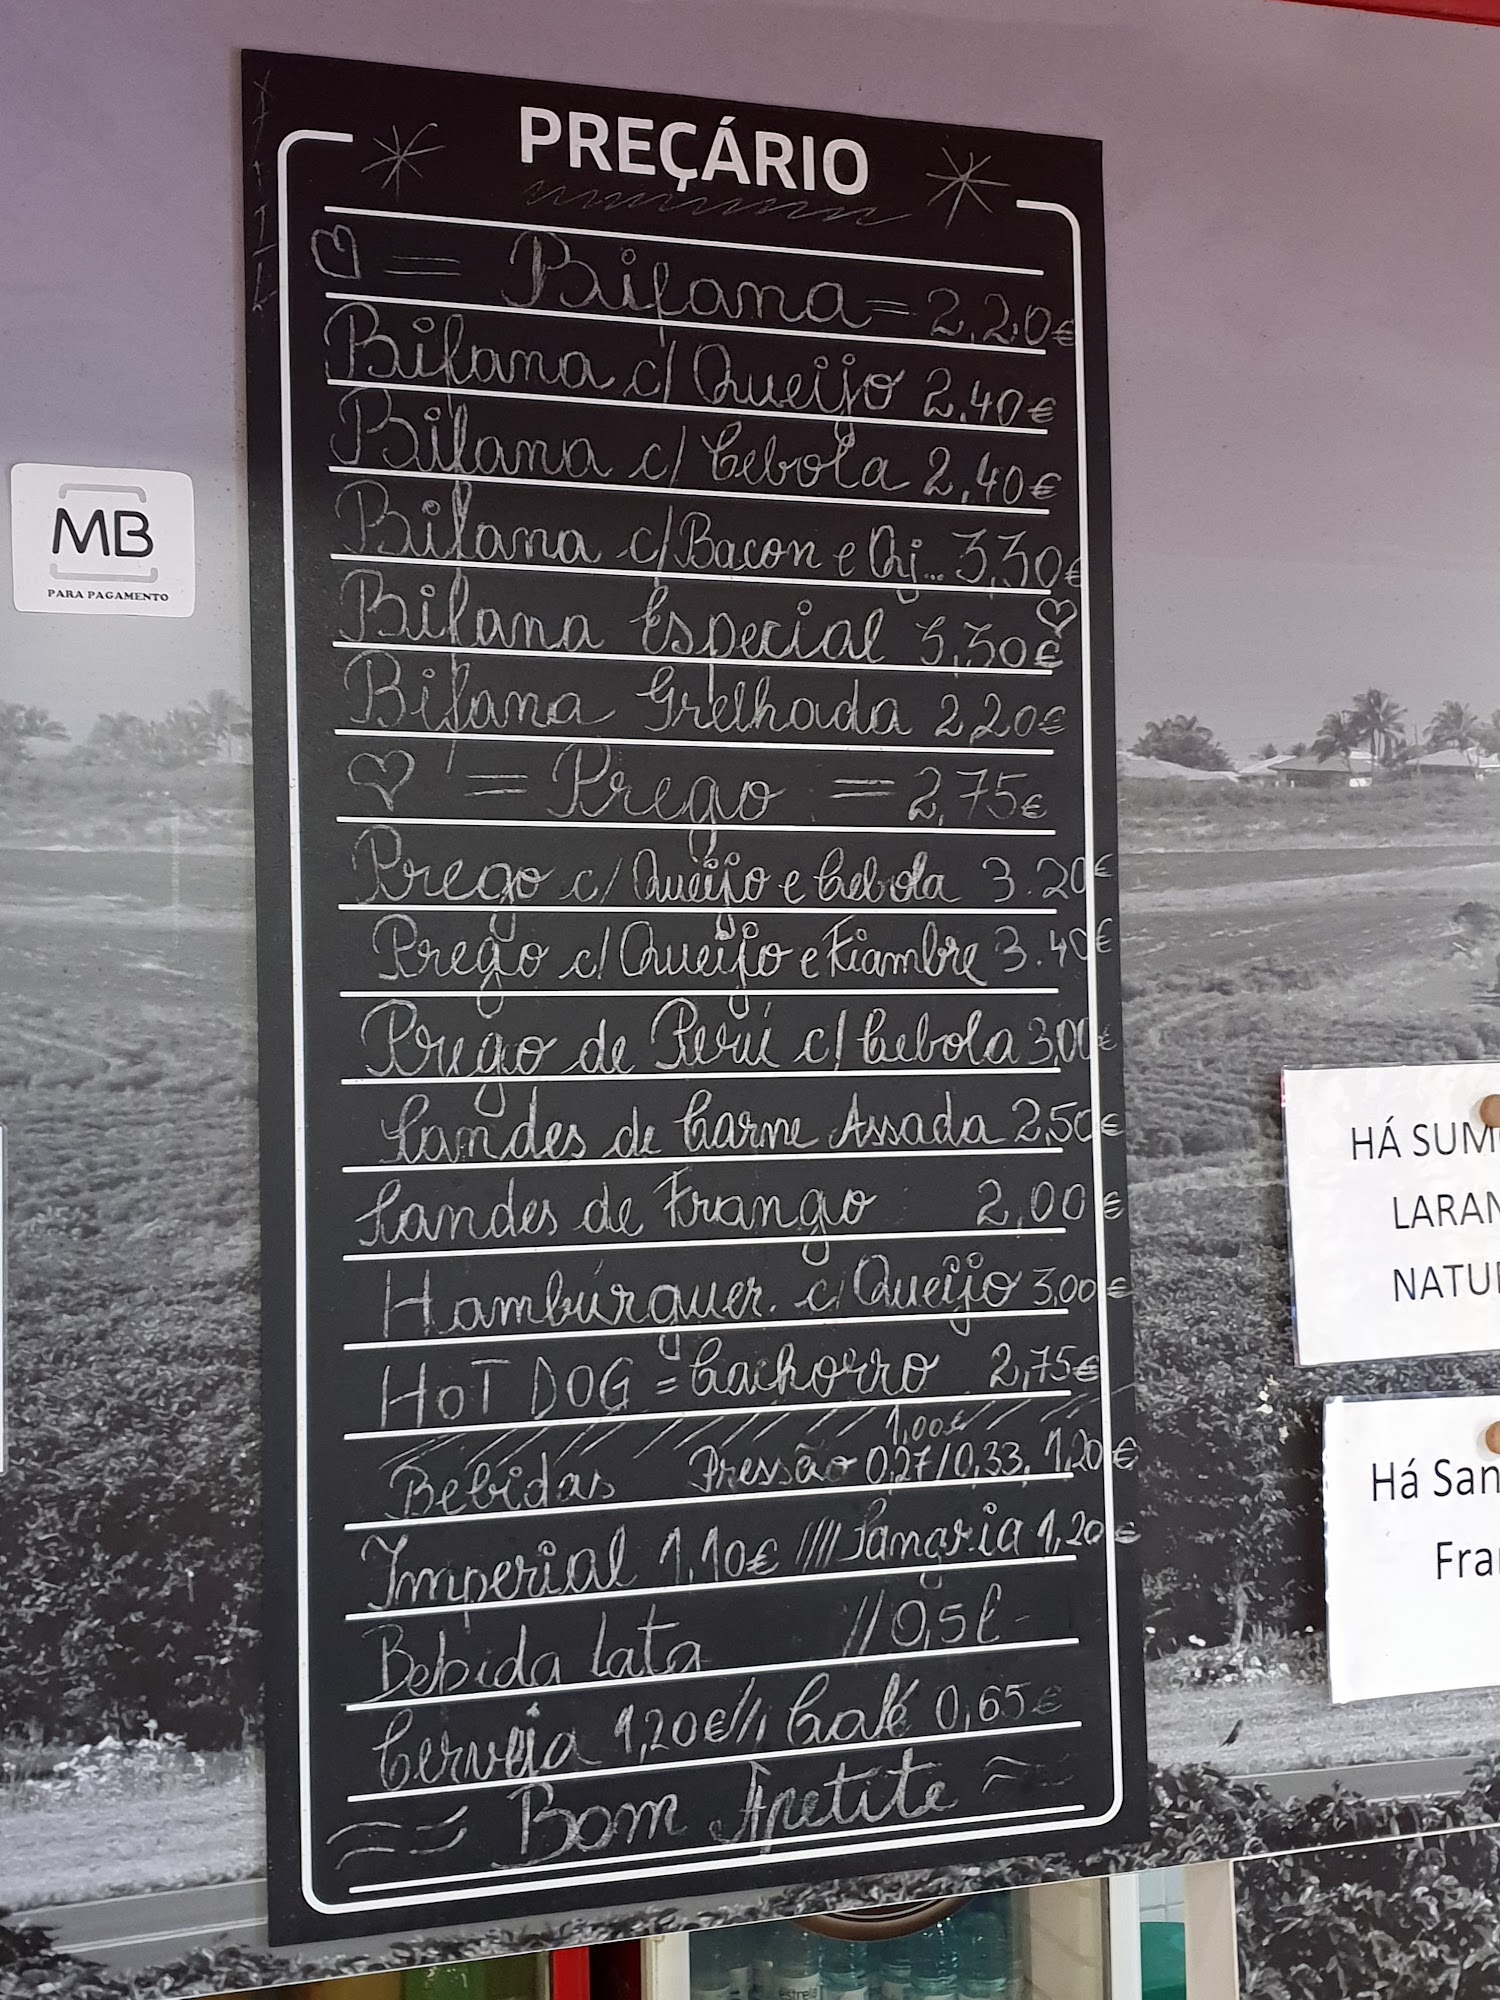 PREÇÁRIO
= Bifana = 2,20€
Bifana c/ Queijo 2.40€
Bifana c/ Cebola 2,40€
Bifana c/Bacon e Qj... 3,30€
Bifana Especial 3,30€
Bifana Grelhada 2,20€
= Prego = 2,75€
Prego c/ Queijo e Cebola 3.20€
Prego c/ Queijo e Fiambre 3.40€
Prego de Perú c/ Cebola 3,00€
Sandes de Carne Assada 2,50€
Sandes de Frango 2,00€
Hambúrguer. c/ Queijo 3,00€
HOT DOG = Cachorro 2,75€
1,00€
Bebidas Pressão 0,27/0,33. 1,20€
Imperial 1.10€ //// Sangria 1,20€
Bebida Lata // 0,5l -
Cerveja 1,20€// Café 0,65€
Bom Apetite
MB
PARA PAGAMENTO
HÁ SUM
LARAN
NATU
Há San
Fra